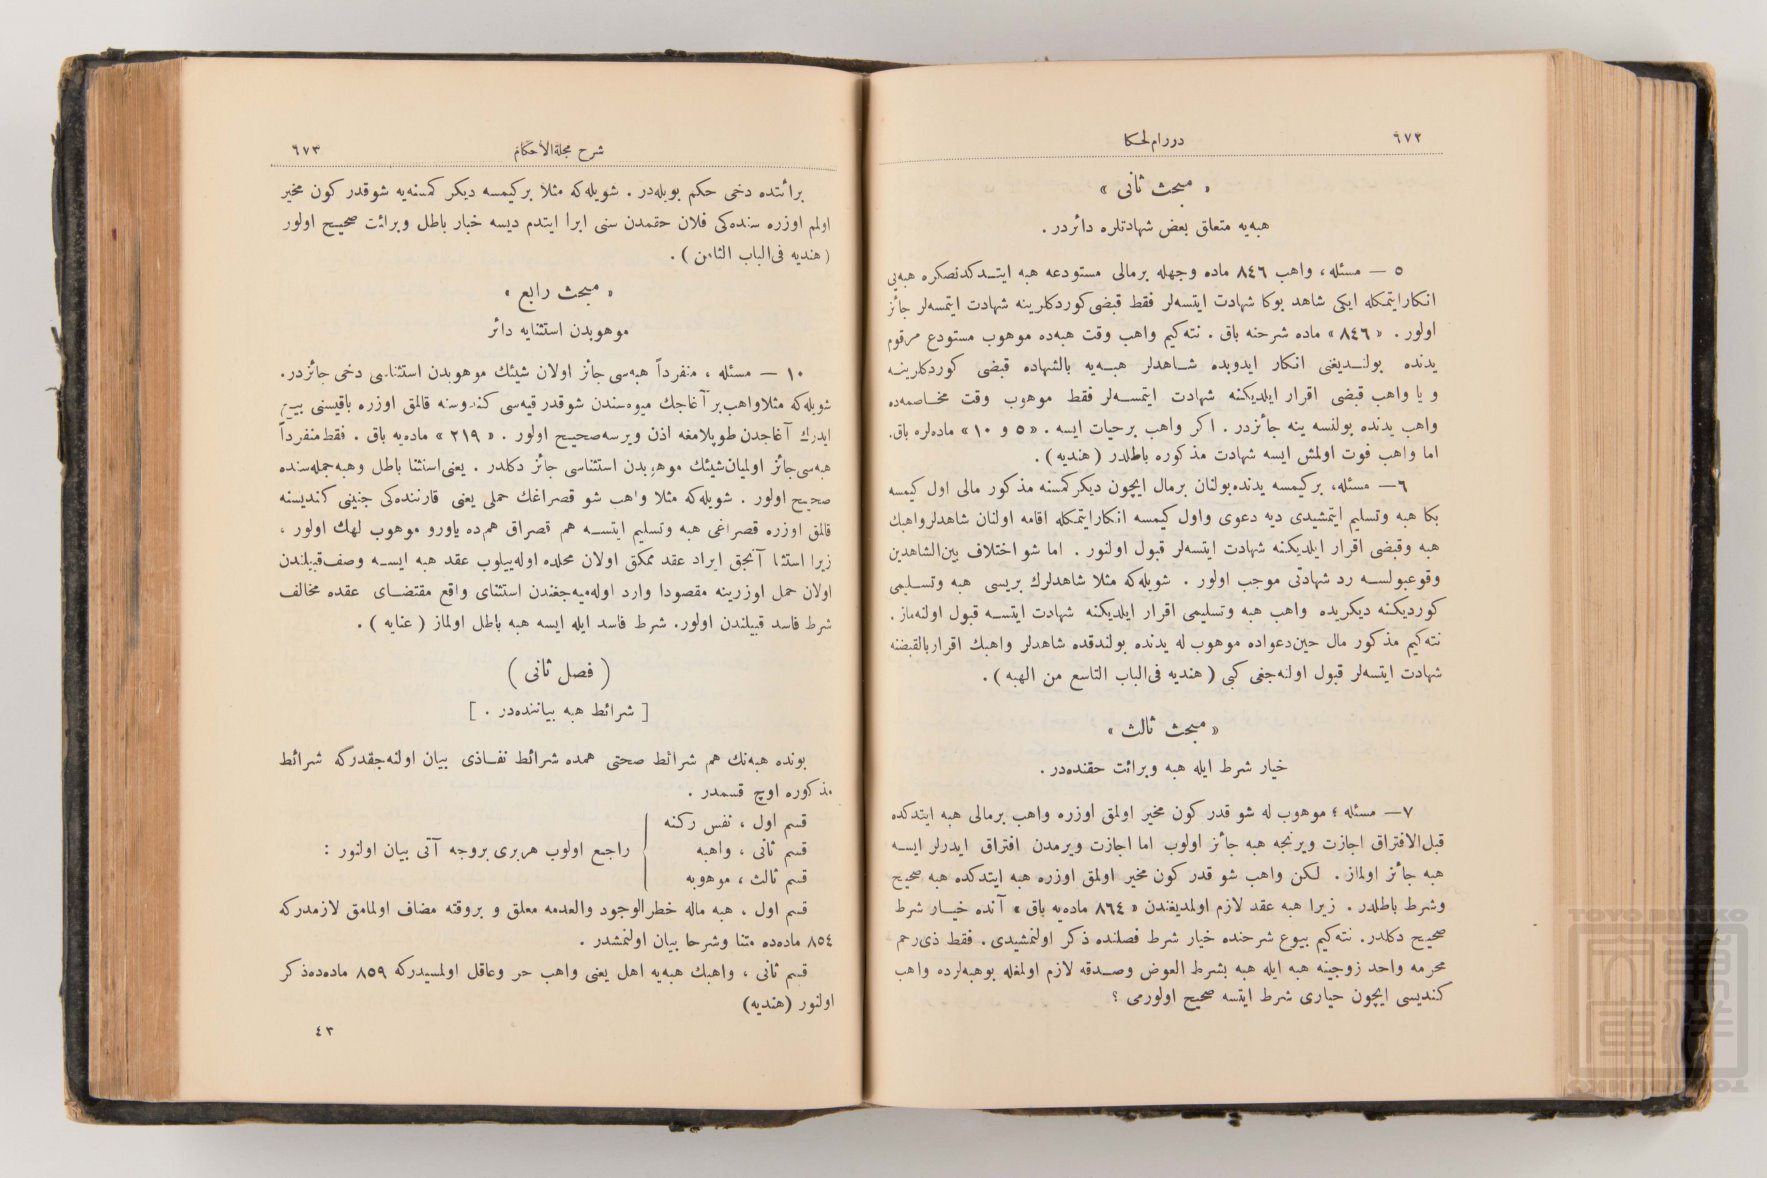 ٦٧٢
دررالحكام
« مبحث ثانی »
هبه‌یه متعلق بعض شهادتلره دائردر .
٥ — مسئله ، واهب ٨٤٦ ماده وجهله برمالی مستودعه هبه ایتــدكدنصكره هبه‌یی
انكارایتمكله ایكی شاهد بوكا شهادت ایتسه‌لر فقط قبضی كوردكلرینه شهادت ایتمسه‌لر جائز
اولور . « ٨٤٦ » ماده شرحنه باق . نته‌كیم واهب وقت هبه‌ده موهوب مستودع مرقوم
یدنده بولنــدیغنی انكار ایدوبده شــاهدلر هبــه‌یه بالشهاده قبضی كوردكلرینــه
و یا واهب قبضی اقرار ایلدیكنه شهادت ایتمســه‌لر فقط موهوب وقت مخــاصمه‌ده
واهب یدنده بولنسه ینه جائزدر . اكر واهب برحیات ایسه . « ٥ و ١٠ » ماده‌لره باق.
اما واهب فوت اولمش ایسه شهادت مذكوره باطلدر ( هندیه ) .
٦ — مسئله، بركیمسه یدنده‌بولنان برمال ایچون دیكركمسنه مذكور مالی اول كیمسه
بكا هبه وتسلیم ایتمشیدی دیه دعوی واول كیمسه انكارایتمكله اقامه اولنان شاهدلرواهبك
هبه وقبضی اقرار ایلدیكنه شهادت ایتسه‌لر قبول اولنور . اما شو اختلاف بین‌الشاهدین
وقوعبولســه رد شهادتی موجب اولور . شویله‌كه مثلا شاهدلرك بریسی هبه وتســلیمی
كوردیكنه دیكریده واهب هبه وتسلیمی اقرار ایلدیكنه شهادت ایتســه قبول اولنه‌ماز .
نته‌كیم مذكور مال حین‌دعواده موهوب له یدنده بولندقده شاهدلر واهبك اقراربالقبضنه
شهادت ایتسه‌لر قبول اولنه‌جغی كبی ( هندیه فی‌الباب التاسع من الهبه ) .
« مبحث ثالث »
خیار شرط ایله هبه وبرائت حقنده‌در .
٧ — مسئله ؛ موهوب له شو قدر كون مخیر اولمق اوزره واهب برمالی هبه ایتدكده
قبل‌الافتراق اجازت ویرنجه هبه جائز اولوب اما اجازت ویرمدن افتراق ایدرلر ایســه
هبه جائز اولماز . لكن واهب شو قدر كون مخیر اولمق اوزره هبه ایتدكده هبه صحیح
وشرط باطلدر . زیرا هبه عقد لازم اولمدیغندن « ٨٦٤ ماده‌یه باق » آنده خیــار شرط
صحیح دكلدر. نته‌كیم بیوع شرحنده خیار شرط فصلنده ذكر اولنمشیدی . فقط ذی‌رحم
محرمه واحد زوجینه هبه ایله هبه بشرط العوض وصــدقه لازم اولمغله بوهبه‌لرده واهب
كندیسی ایچون حیاری شرط ایتسه صحیح اولورمی ؟
شرح مجلة‌الأحكام
٦٧٣
برائتده دخی حكم بویله‌در . شویله‌كه مثلا بركیمسه دیكر كمسنه‌یه شوقدر كون مخیر
اولم اوزره سنده‌كی فلان حقمدن سنی ابرا ایتدم دیسه خیار باطل وبرائت صحیــح اولور
( هندیه فی‌الباب الثامن ) .
« مبحث رابع »
موهوبدن استثنایه دائر
١٠ — مسئله ، منفرداً هبه‌سی جائز اولان شیئك موهوبدن استثناسی دخی جائزدر.
شویله‌كه مثلاواهب‌بر آغاجك میوه‌سندن شوقدرقیه‌سی كندوسنه قالمق اوزره باقیسنی بیــع
ایدرك آغاجدن طوپلامغه اذن ویرسه‌صحیــح اولور . « ٢١٩ » ماده‌یه باق . فقط‌منفرداً
هبه‌سی جائز اولمیان‌شیئك موهوبدن استثناسی جائز دكلدر . یعنی‌استثنا باطل وهبه‌جمله‌سنده
صحیح اولور . شویله‌كه مثلا واهب شو قصراغك حملی یعنی قارننده‌كی جنینی كندیسنه
قالمق اوزره قصراغی هبه وتسلیم ایتســه هم قصراق هم‌ده یاورو موهوب لهك اولور ،
زیرا استثنا آنجق ایراد عقد ممكق اولان محلده اوله‌بیلوب عقد هبه ایســه وصف‌قبیلندن
اولان حمل اوزرینه مقصودا وارد اوله‌میه‌جغندن استثنای واقع مقتضــای عقده مخالف
شرط فاسد قبیلندن اولور. شرط فاسد ایله ایسه هبه باطل اولماز ( عنایه ) .
( فصل ثانی )
[ شرائط هبه بیاننده‌در . ]
بونده هبه‌نك هم شرائط صحتی همده شرائط نفــاذی بیان اولنه‌جقدركه شرائط
مذكوره اوچ قسمدر .
قسم اول ، نفس ركنه
قسم ثانی ، واهبه
قسم ثالث ، موهوبه
راجع اولوب هربری بروجه آتی بیان اولنور :
قسم اول ، هبه ماله خطرالوجود والعدمه معلق و بروقته مضاف اولمامق لازمدركه
٨٥٤ ماده‌ده متنا وشرحا بیان اولنمشدر .
قسم ثانی ، واهبك هبه‌یه اهل یعنی واهب حر وعاقل اولمسیدركه ٨٥٩ ماده‌ده‌ذكر
اولنور (هندیه)
٤٣
TOYO BUNKO
東洋文庫
TOYO BUNKO